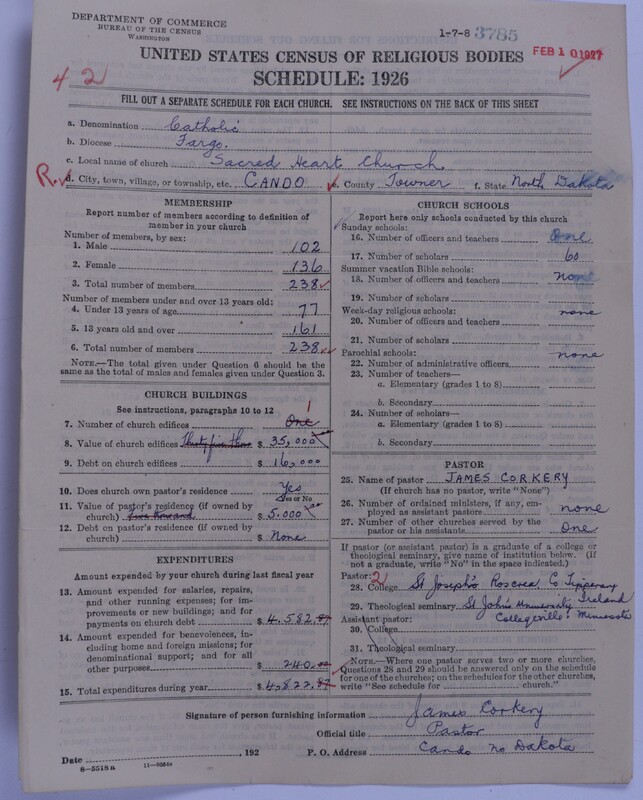 DEPARTMENT OF COMMERCE
BUREAU OF THE CENSUS
WASHINGTON
1-7-8 3785
FEB 10 1927
UNITED STATES CENSUS OF RELIGIOUS BODIES
SCHEDULE: 1926
42
FILL OUT A SEPARATE SCHEDULE FOR EACH CHURCH. SEE INSTRUCTIONS ON THE BACK OF THIS SHEET
a. Denomination Catholic
b. Diocese Fargo.
c. Local name of church Sacred Heart Church.
R. d. City, town, village, or township, etc. CANDO e. County Towner f. State North Dakota
MEMBERSHIP
Report number of members according to definition of
member in your church
Number of members, by sex:
1. Male 102
2. Female 136
3. Total number of members 238
Number of members under and over 13 years old:
4. Under 13 years of age 77
5. 13 years old and over 161
6. Total number of members 238
NOTE.—The total given under Question 6 should be
the same as the total of males and females given under Question 3.
CHURCH BUILDINGS
See instructions, paragraphs 10 to 12
1
7. Number of church edifices One
8. Value of church edifices Thirty five thous $ 35,000
9. Debt on church edifices $ 16,000
10. Does church own pastor's residence Yes
Yes or No
11. Value of pastor's residence (if owned by
church) five thousand $ 5.000
12. Debt on pastor's residence (if owned by
church) $ None
EXPENDITURES
Amount expended by your church during last fiscal year
13. Amount expended for salaries, repairs,
and other running expenses; for im-
provements or new buildings; and for
payments on church debt $ 4,582.87
14. Amount expended for benevolences, in-
cluding home and foreign missions; for
denominational support; and for all
other purposes $ 240.00
15. Total expenditures during year $ 4,822.87
CHURCH SCHOOLS
Report here only schools conducted by this church
Sunday schools:
16. Number of officers and teachers One
17. Number of scholars 60
Summer vacation Bible schools:
18. Number of officers and teachers none
19. Number of scholars
Week-day religious schools: none
20. Number of officers and teachers
21. Number of scholars
Parochial schools: none
22. Number of administrative officers
23. Number of teachers—
a. Elementary (grades 1 to 8)
b. Secondary
24. Number of scholars—
a. Elementary (grades 1 to 8)
b. Secondary
PASTOR
25. Name of pastor JAMES CORKERY
(If church has no pastor, write "None")
26. Number of ordained ministers, if any, em-
ployed as assistant pastors none
27. Number of other churches served by the
pastor or his assistants One
If pastor (or assistant pastor) is a graduate of a college or
theological seminary, give name of institution below. (If
not a graduate, write "No" in the space indicated.)
Pastor: 2
28. College St Joseph's Roscrea, Co Tipperary
Ireland
29. Theological seminary St John's University
Collegeville, Minnesota
Assistant pastor:
30. College
31. Theological seminary
NOTE.—Where one pastor serves two or more churches,
Questions 28 and 29 should be answered only on the schedule
for one of the churches; on the schedules for the other churches,
write "See schedule for church."
Signature of person furnishing information James Corkery
Official title Pastor
Date , 192 P. O. Address Cando no Dakota
8-5518a